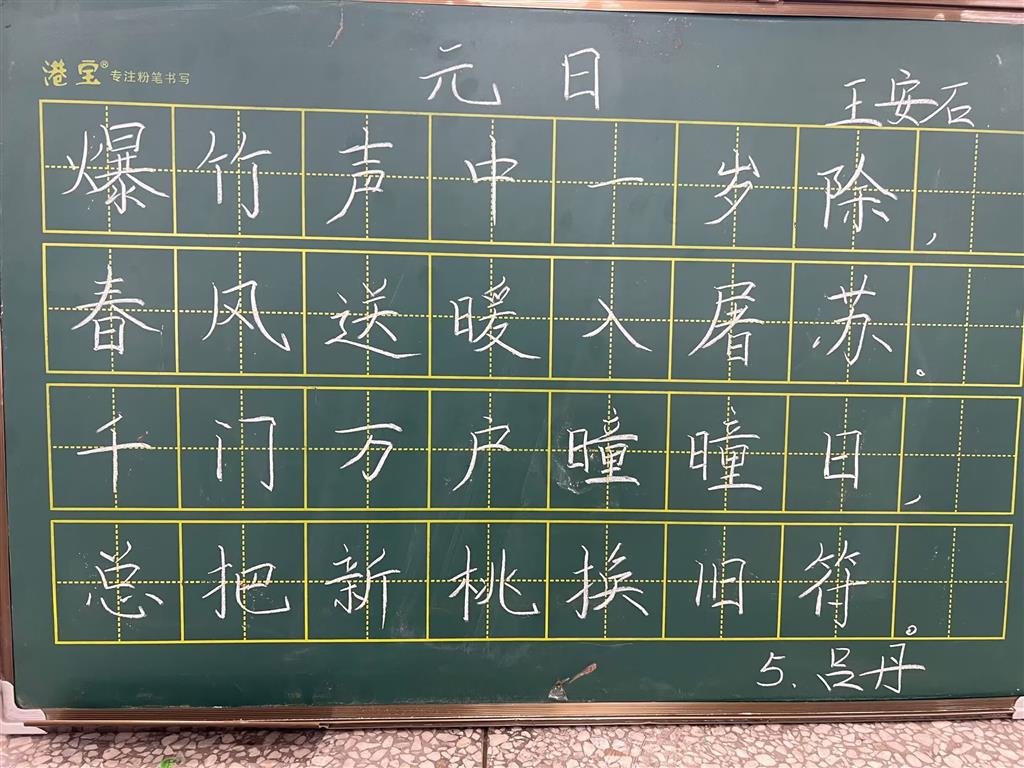 港宝® 专注粉笔书写
元日
王安石
爆竹声中一岁除,
春风送暖入屠苏。
千门万户曈曈日,
总把新桃换旧符。
5. 吕丹